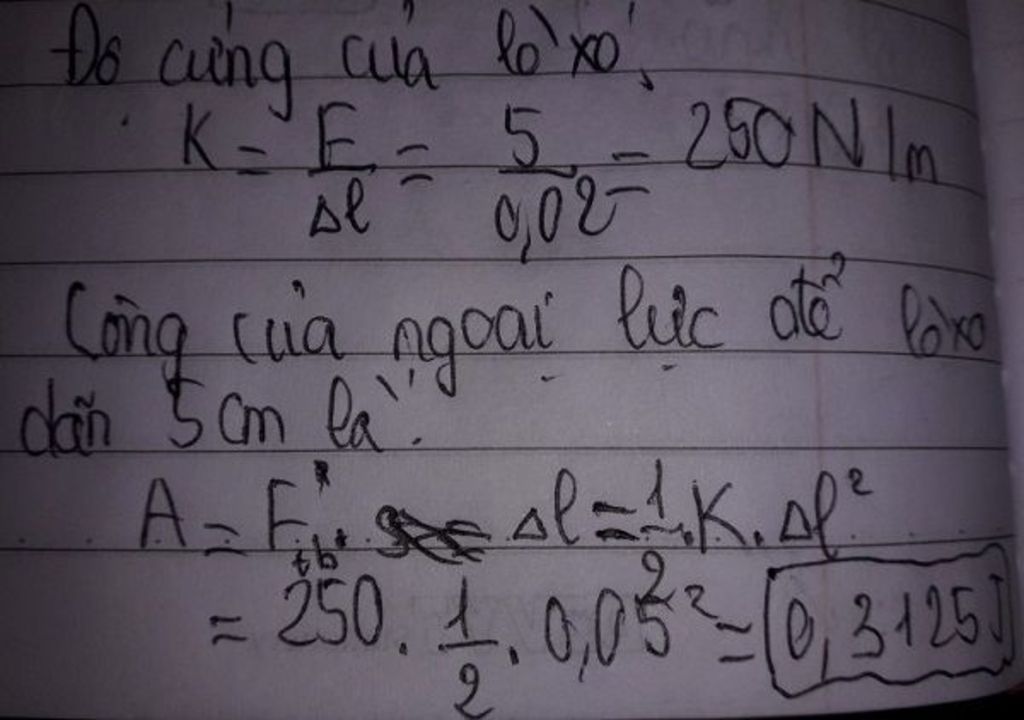 Độ cứng của lò xo:
K = F/Δl = 5/0,02 = 250 N/m
Công của ngoại lực để lò xo
dãn 5 cm là:
A = Ftb . Δl = 1/2 . K . Δl²
= 250 . 1/2 . 0,05² = 0,3125J